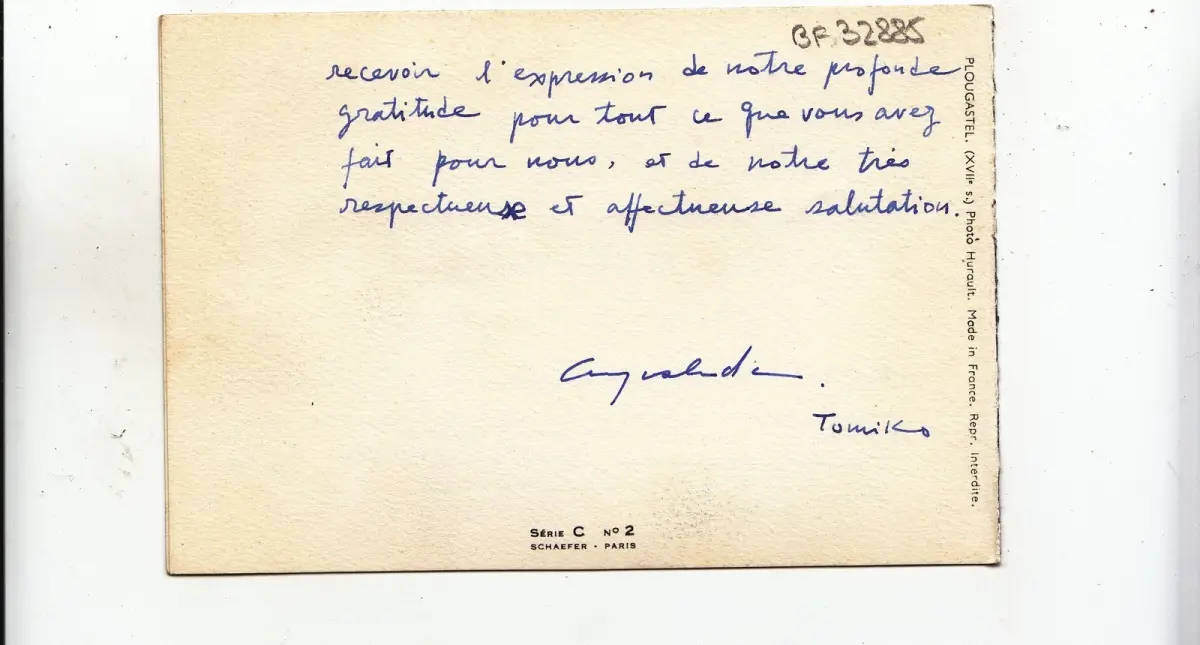 BF 32885
recevoir l'expression de notre profonde
gratitude pour tout ce que vous avez
fait pour nous, et de notre très
respectueuse et affectueuse salutation.
Tomiko
SÉRIE C Nº 2
SCHAEFER · PARIS
PLOUGASTEL. (XVIIe s.) Photo Hurault. Made in France. Repr. Interdite.